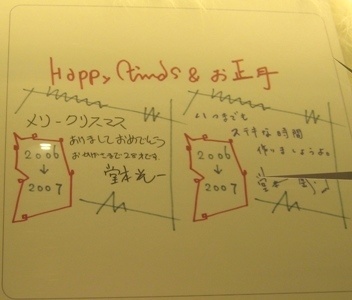 Happy Xmas & お正月
メリークリスマス
ありましておめでとう
2006
↓
2007
堂本光一
いつまでも
ステキな時間
作りましょうよ。
2006
↓
2007
堂本 剛